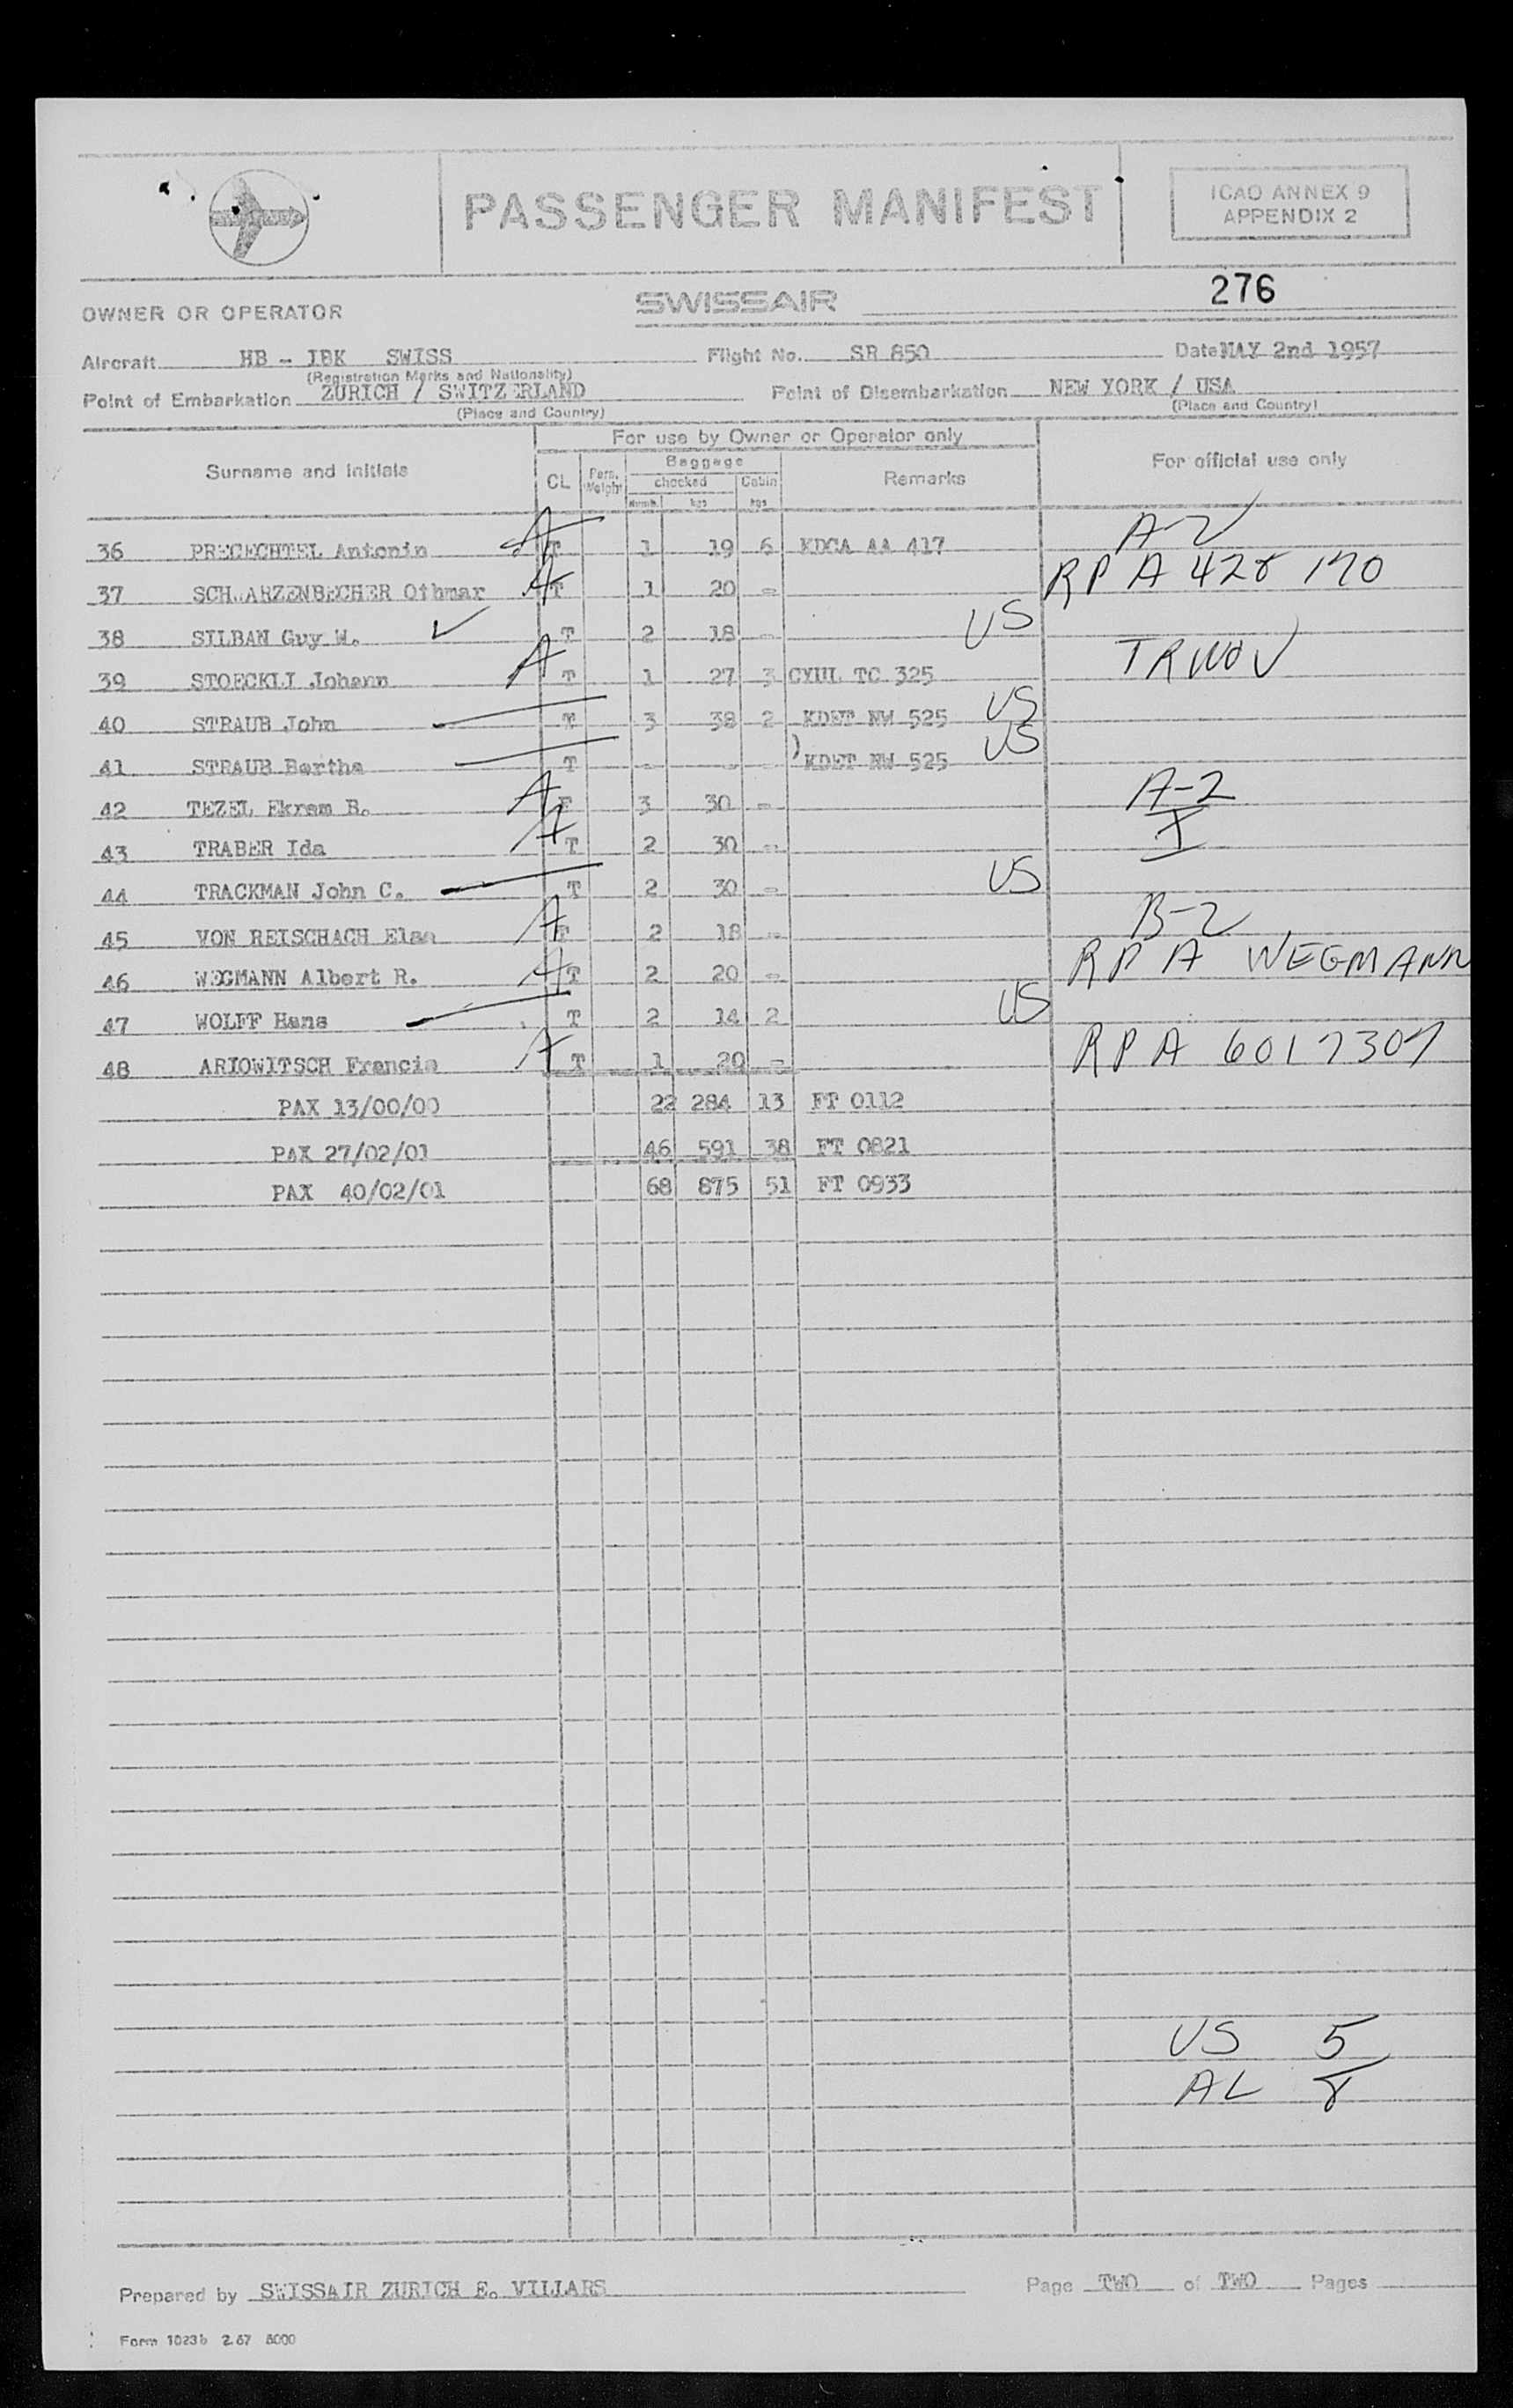 PASSENGER MANIFEST
ICAO ANNEX 9
APPENDIX 2
276
OWNER OR OPERATOR SWISSAIR
Aircraft HB - IBK SWISS Flight No. SR 850 Date MAY 2nd 1957
(Registration Marks and Nationality)
Point of Embarkation ZURICH / SWITZERLAND Point of Disembarkation NEW YORK / USA
(Place and Country) (Place and Country)
For use by Owner or Operator only
Surname and Initials CL Pers. Weight Baggage Remarks For official use only
checked Cabin
Numb. kgs kgs
36 PRECECHTEL Antonin A T 1 19 6 KDCA AA 417 A-2
37 SCHWARZENBECHER Othmar A T 1 20 - RPA 428 170
38 SILBAN Guy W. ✓ T 2 18 - US
39 STOECKLI Johann A T 1 27 3 CYUL TC 325 TRWOV
40 STRAUB John T 3 38 2 KDET NW 525 US
41 STRAUB Bertha T - - - ) KDET NW 525 US
42 TEZEL Ekrem B. A F 3 30 - A-2
43 TRABER Ida A T 2 30 - I
44 TRACKMAN John C. T 2 30 - US
45 VON REISCHACH Elsa A F 2 18 - B-2
46 WEGMANN Albert R. A T 2 20 - RPA WEGMANN
47 WOLFF Hans T 2 14 2 US
48 ARIOWITSCH Francis A T 1 20 - RPA 6017307
PAX 13/00/00 22 284 13 FT 0112
PAX 27/02/01 46 591 38 FT 0821
PAX 40/02/01 68 875 51 FT 0933
US 5
AL 8
Prepared by SWISSAIR ZURICH E. VILLARS Page TWO of TWO Pages
Form 1023b 2.57 5000